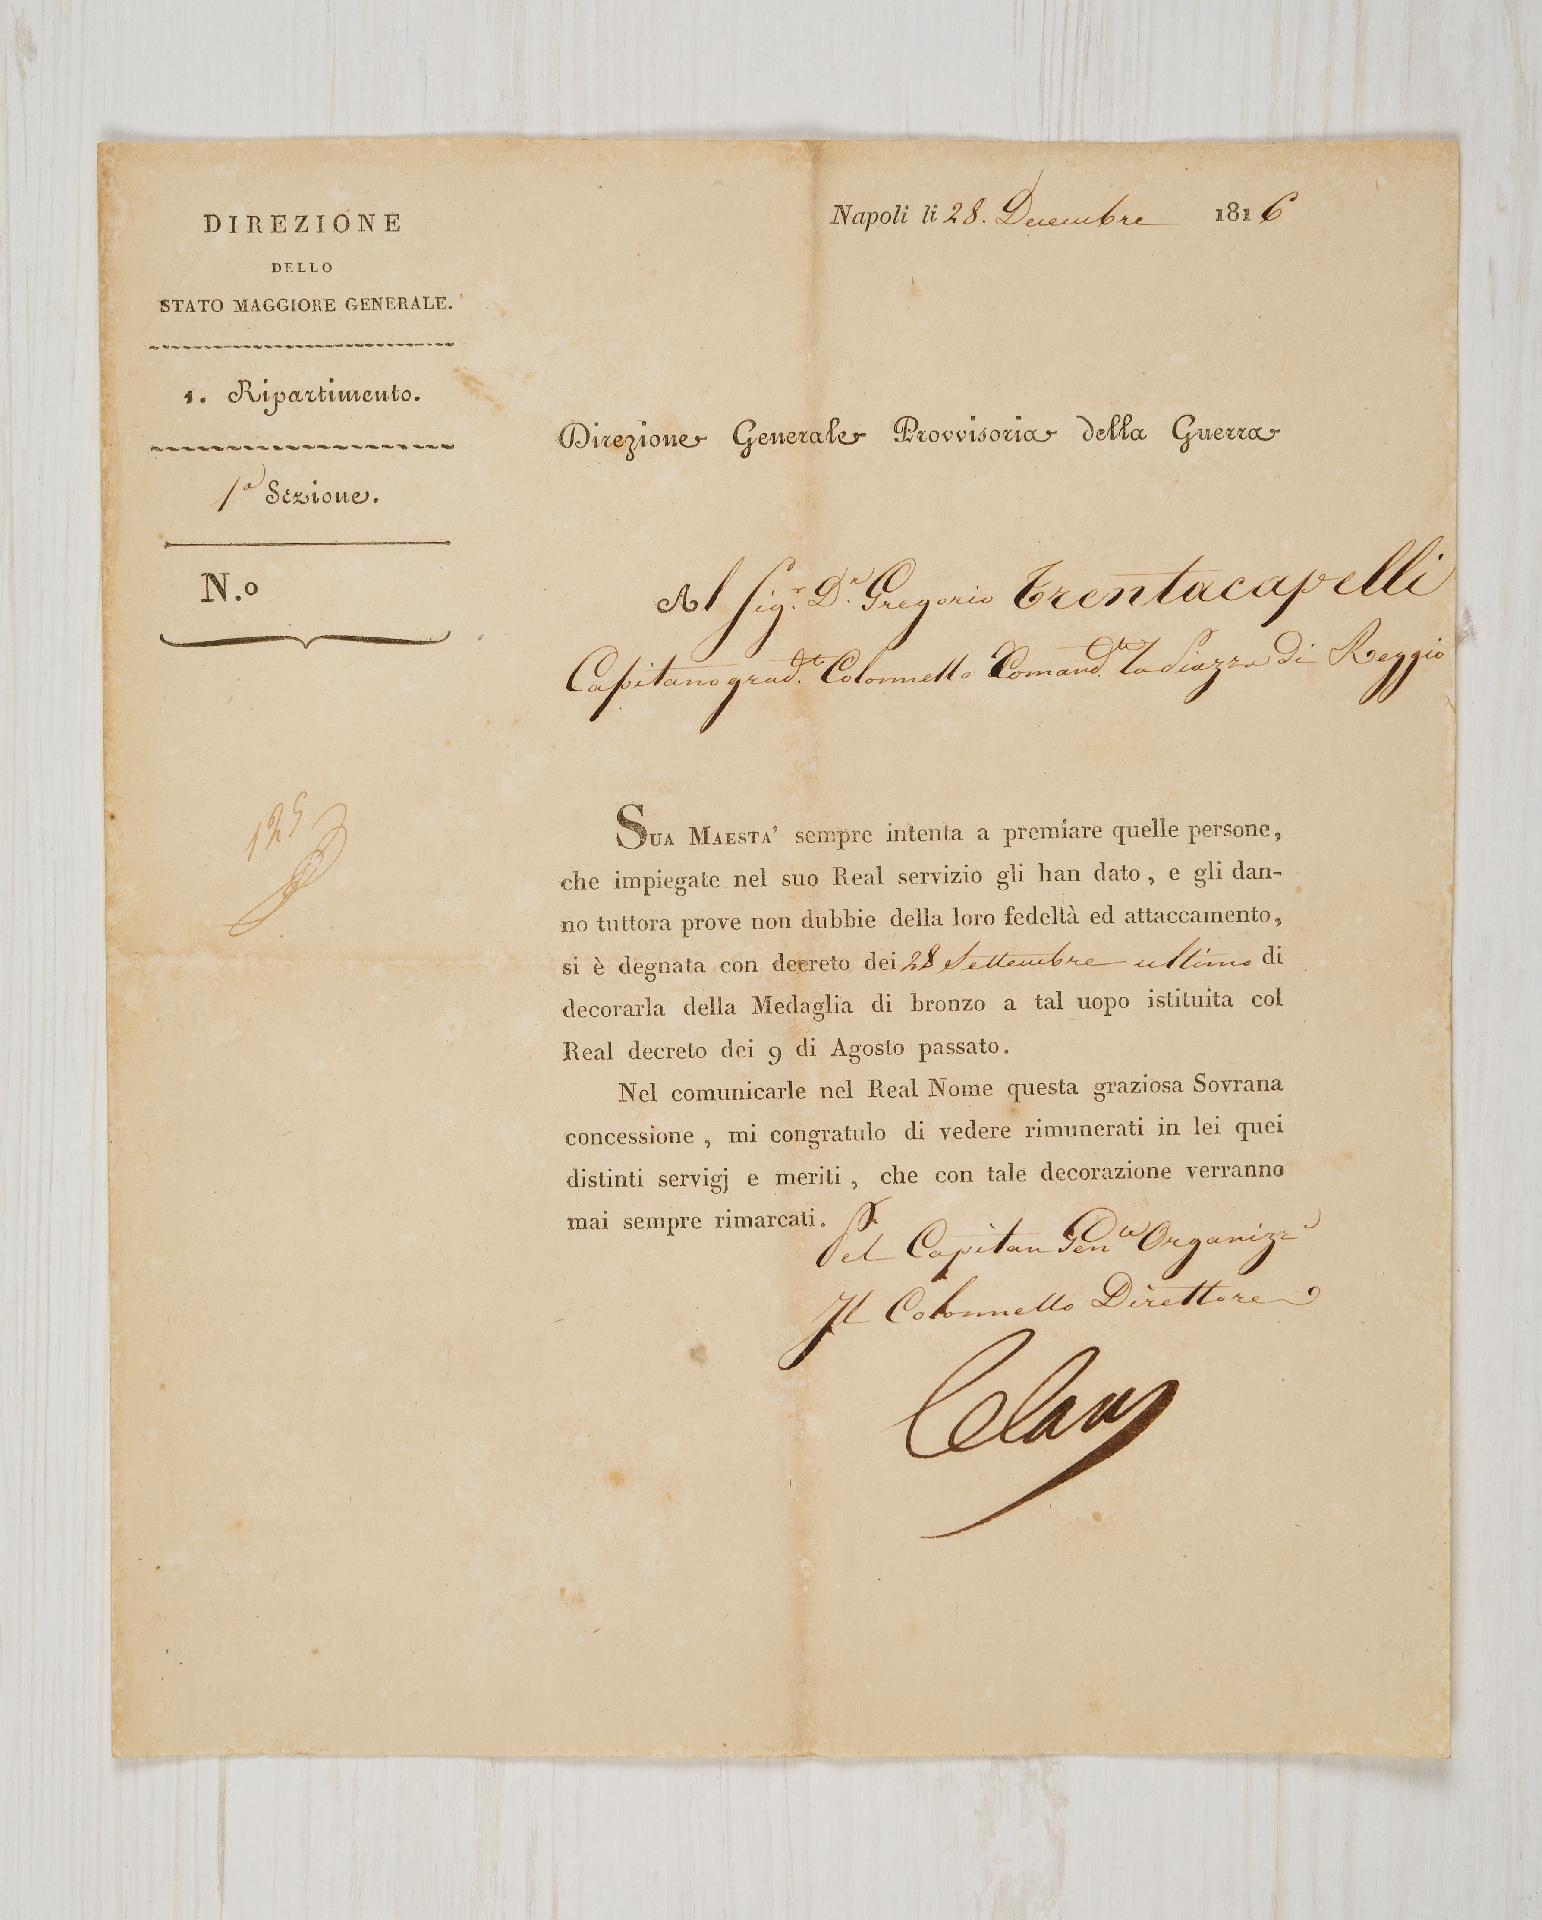 DIREZIONE
DELLO
STATO MAGGIORE GENERALE.
1. Ripartimento.
1a Sezione.
N.o
125
Napoli li 28. Decembre 1816
Direzione Generale Provvisoria della Guerra
Al Sigr. Dn. Gregorio Trentacapelli
Capitano grad.to Colonnello Comand.te la Piazza di Reggio
SUA MAESTA' sempre intenta a premiare quelle persone,
che impiegate nel suo Real servizio gli han dato, e gli dan-
no tuttora prove non dubbie della loro fedeltà ed attaccamento,
si è degnata con decreto dei 28 Settembre ultimo di
decorarla della Medaglia di bronzo a tal uopo istituita col
Real decreto dei 9 di Agosto passato.
Nel comunicarle nel Real Nome questa graziosa Sovrana
concessione, mi congratulo di vedere rimunerati in lei quei
distinti servigj e meriti, che con tale decorazione verranno
mai sempre rimarcati.
Pel Capitan Gen.le Organizz.
Il Colonnello Direttore